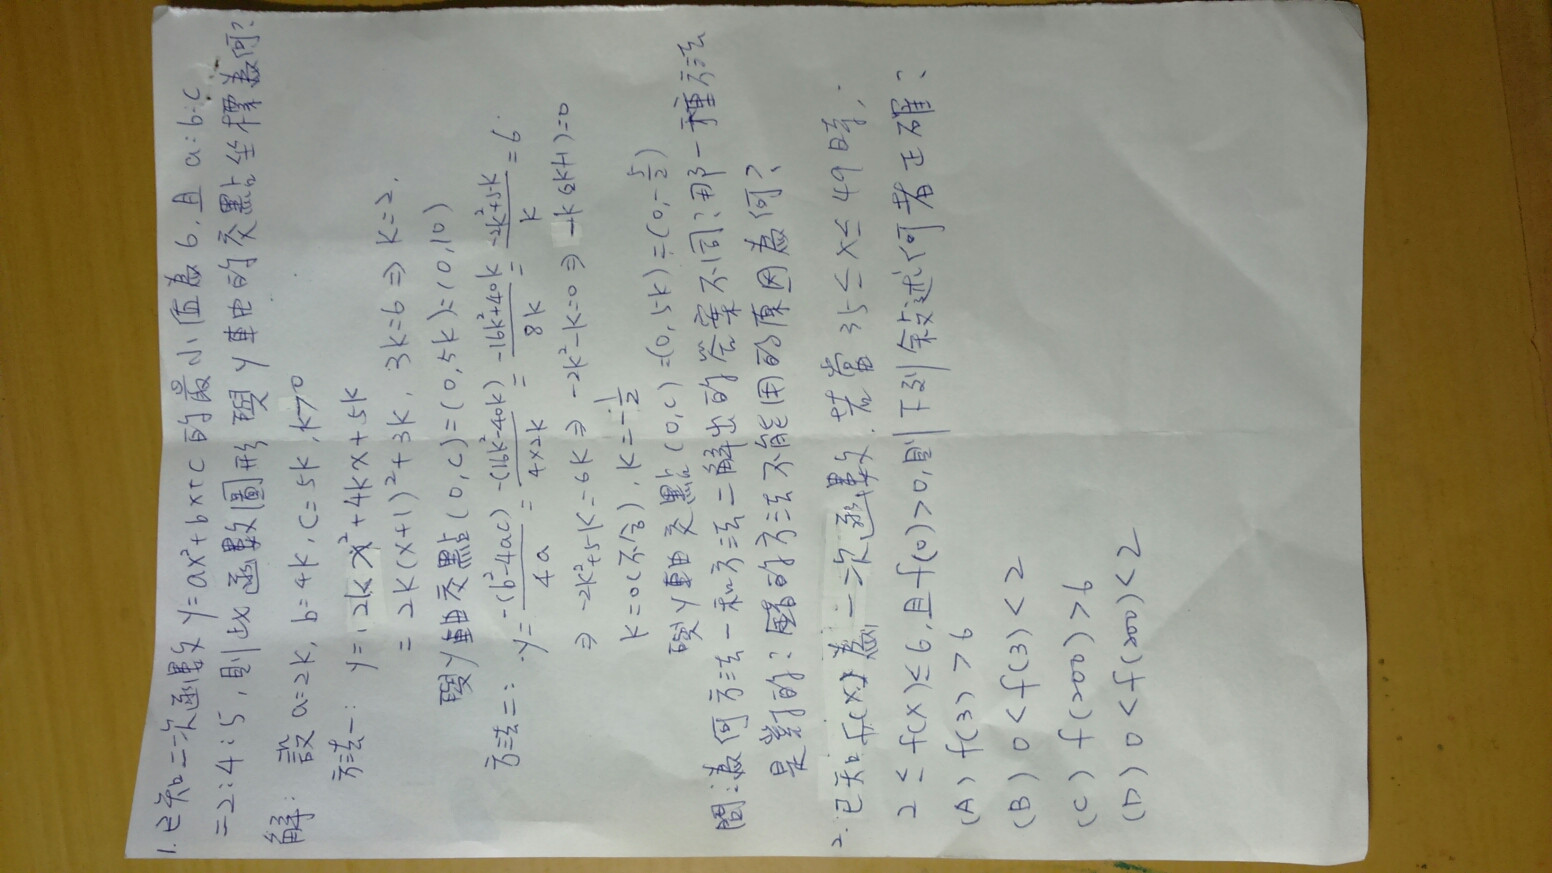 1. 已知二次函數 y=ax²+bx+c 的最小值為 6,且 a:b:c
=2:4:5,則此函數圖形與 y 軸的交點坐標為何?
解: 設 a=2k, b=4k, c=5k, k>0
方法一: y=2kx²+4kx+5k
=2k(x+1)²+3k, 3k=6⇒k=2.
與 y 軸交點(0,c)=(0,5k)=(0,10)
方法二: y=-(b²-4ac)/4a=-(16k²-40k)/4×2k=-16k²+40k/8k=-2k²+5k/k=6.
⇒-2k²+5k=6k⇒-2k²-k=0⇒-k(2k+1)=0
k=0(不合), k=-1/2
與 y 軸交點(0,c)=(0,5k)=(0,-5/2)
問:為何方法一和方法二解出的答案不同?那一種方法
是對的?錯的方法不能用的原因為何?
2. 已知 f(x) 為一次函數.若當 35≤x≤49 時,
2≤f(x)≤6,且 f(0)>0,則下列敘述何者正確?
(A) f(3)>6
(B) 0<f(3)<2
(C) f(200)>6
(D) 0<f(200)<2